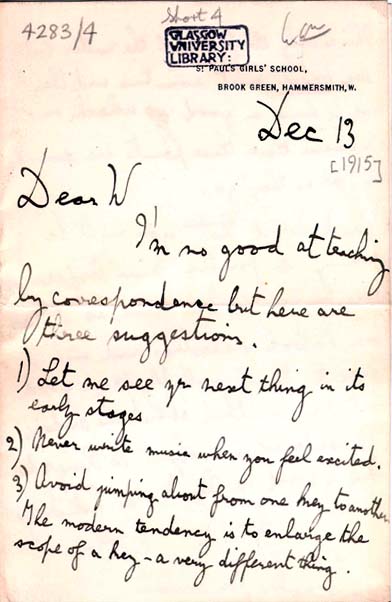 4283/4
Short 4
GLASGOW
UNIVERSITY
LIBRARY:
ST PAUL'S GIRLS' SCHOOL,
BROOK GREEN, HAMMERSMITH, W.
Dec 13
[1915]
Dear W
I'm no good at teaching
by correspondence but here are
three suggestions.
1) Let me see yr next thing in its
early stages
2) Never write music when you feel excited.
3) Avoid jumping about from one key to another.
The modern tendency is to enlarge the
scope of a key – a very different thing.